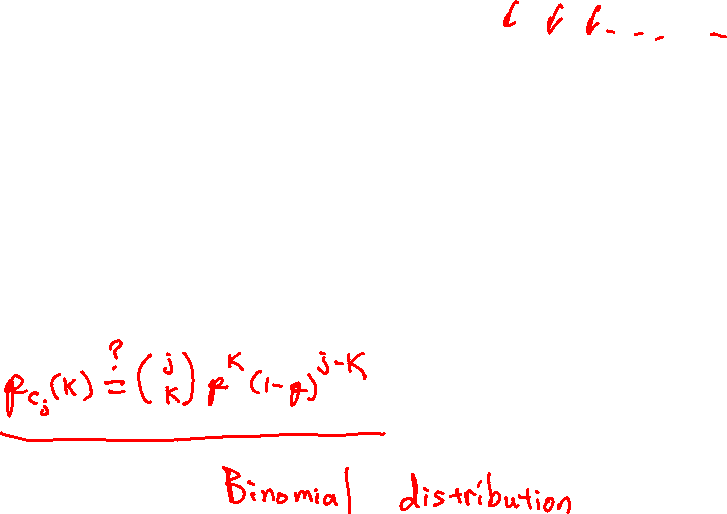 p_{C_j}(K) ≟ \binom{j}{K} p^K (1-p)^{j-K}
Binomial distribution